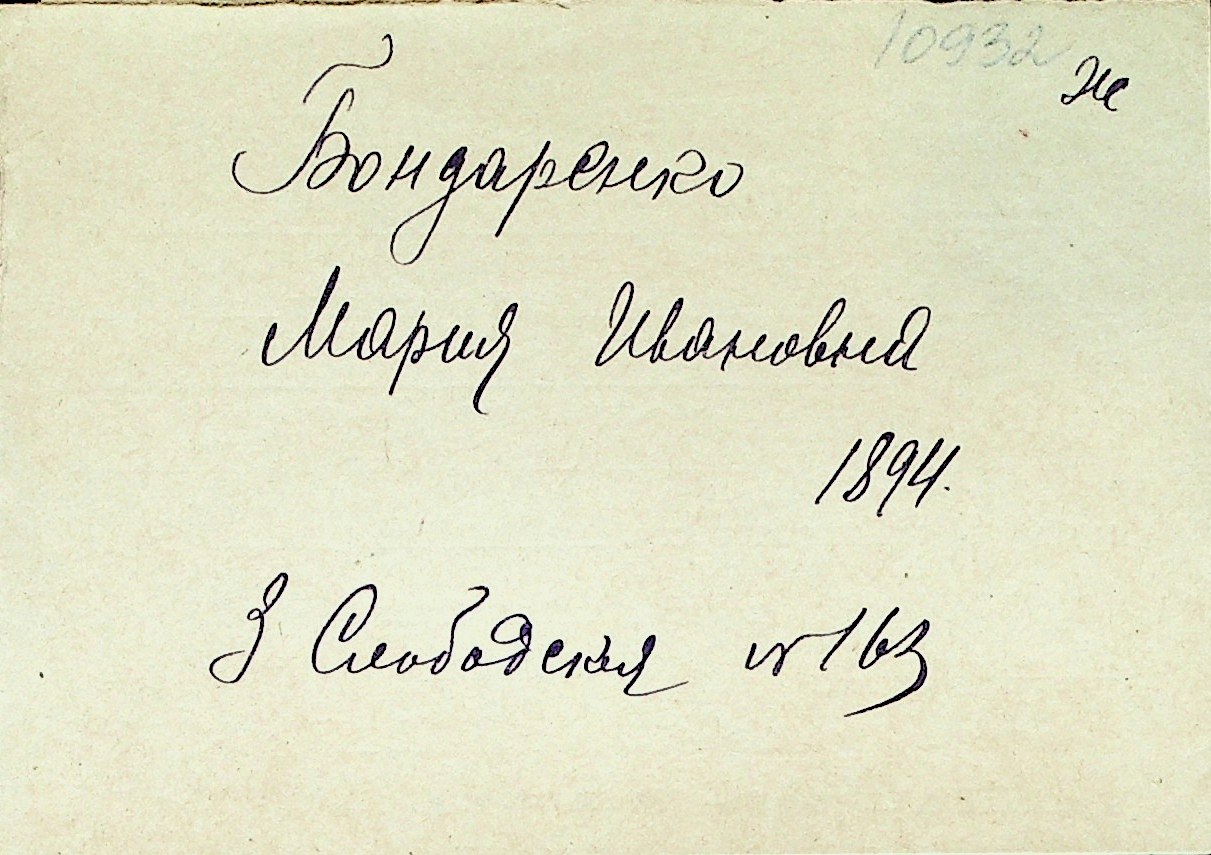 10932 ж
Бондаренко
Мария Ивановна
1894.
3 Слободская № 163